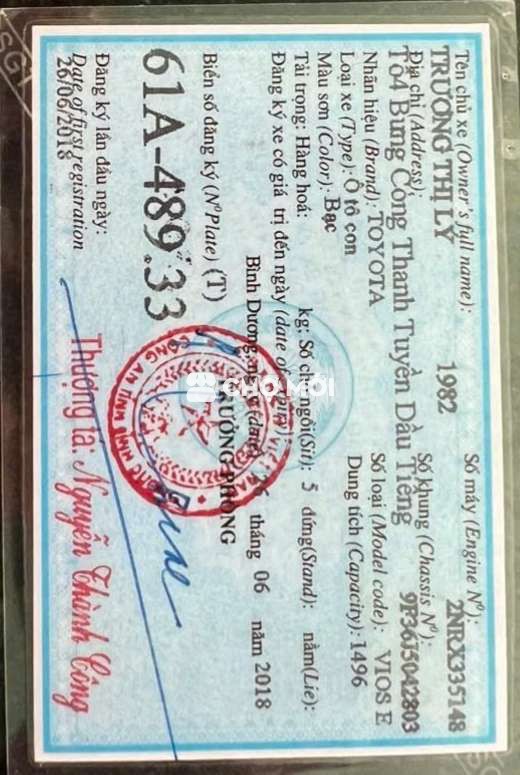 Tên chủ xe (Owner's full name): Số máy (Engine Nº):
TRƯƠNG THỊ LÝ 1982 2NRX335148
Địa chỉ (Address): Số khung (Chassis Nº):
Tổ4 Bưng Còng Thanh Tuyền Dầu Tiếng 9F36J5042803
Nhãn hiệu (Brand): TOYOTA Số loại (Model code): VIOS E
Loại xe (Type): Ô tô con Dung tích (Capacity): 1496
Màu sơn (Color): Bạc
Tải trọng: Hàng hoá: kg: Số chỗ ngồi(Sit): 5 đứng(Stand): nằm(Lie):
Đăng ký xe có giá trị đến ngày (date of expiry)
Bình Dương, ngày (date) 26 tháng 06 năm 2018
Biển số đăng ký (NºPlate) (T) TRƯỞNG PHÒNG
61A-489.33
CHỢ TỐT
Đăng ký lần đầu ngày:
Date of first registration
26/06/2018
Thượng tá: Nguyễn Thành Công